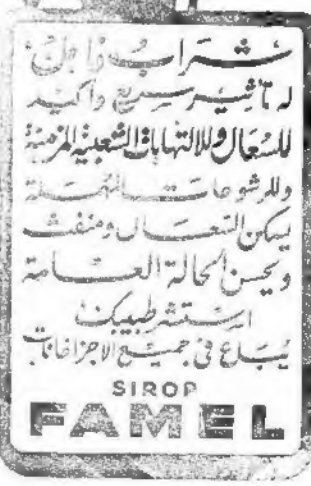 شراب فامل
له تأثير سريع وأكيد
للسعال وللإلتهابات الشعبية المزمنة
وللرشوحات المهملة
يسكن السعال ومنفث
ويحسن الحالة العامة
استشر طبيبك
يباع في جميع الاجزاخانات
SIROP
FAMEL